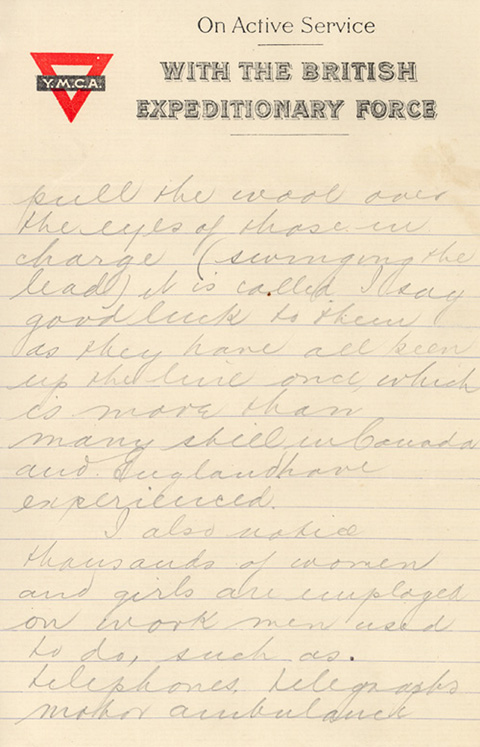 On Active Service
WITH THE BRITISH
EXPEDITIONARY FORCE
Y.M.C.A.
pull the wool over
the eyes of those in
charge (swinging the
lead) it is called I say
good luck to them
as they have all been
up the line once, which
is more than
many still in Canada
and England have
experienced.
I also notice
thousands of women
and girls are employed
on work men used
to do, such as.
telephones. telegraphs
motor ambulance